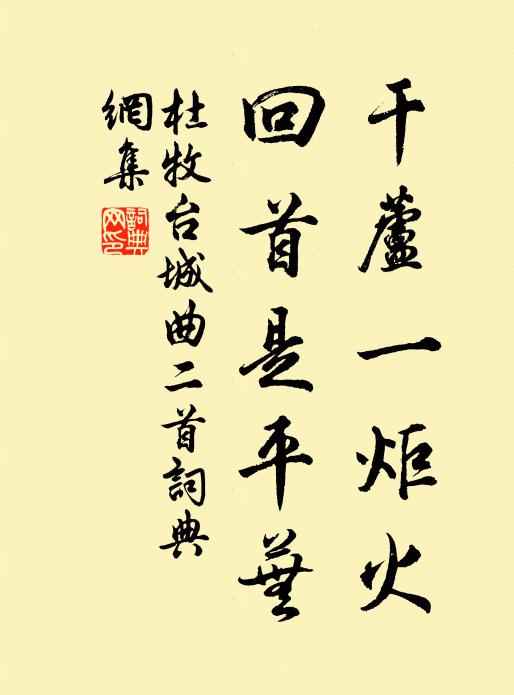 干蘆一炬火
回首是平蕪
杜牧台城曲二首詞典
網集
詞典
网印